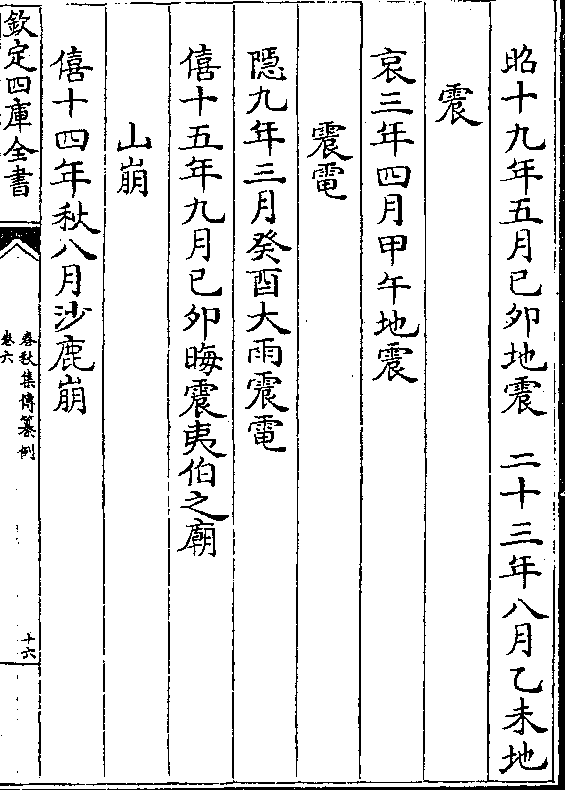 昭十九年五月已卯地震　二十三年八月乙未地
震
哀三年四月甲午地震
震電
隠九年三月癸酉大雨震電
僖十五年九月已卯晦震夷伯之廟
山崩
僖十四年秋八月沙鹿崩
欽定四庫全書
春秋集傳纂例
卷六
十六